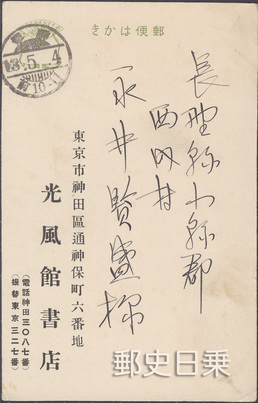 郵便はかき
13.5.4
長野縣小縣郡
西内村
永井賢盛様
東京市神田區通神保町六番地
光風館書店
(電話神田三〇八七番)
(振替東京三二七番)
郵史日乗